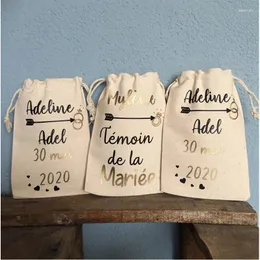 Adeline
Adel
30
2020
Témoin
de la
Mariée
Adeline
Adel
30
2020